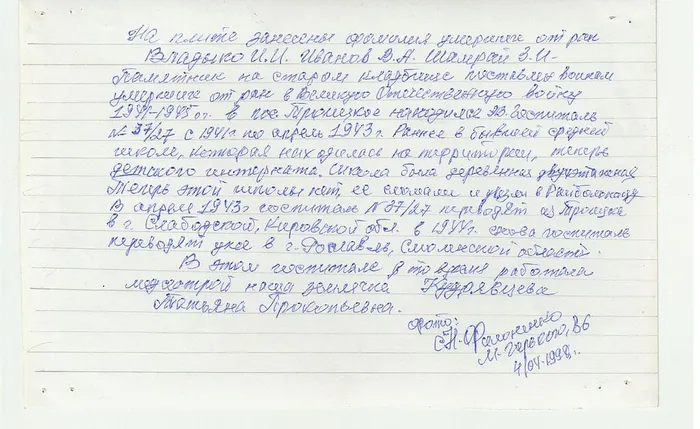 На плите занесены фамилия умерших от ран
Владыко И.И. Иванов В.А. Шамрай З.И-
Памятник на старом кладбище поставлен воинам
умерших от ран в Великую Отечественную войну
1941-1945 гг. в пос. Троицкое находился Эв. Госпиталь
№ 37/27 с 1941г по апрель 1943г. Раннее в бывшей средней
школе, которая находилась на территории, теперь
детского интерната. Школа была деревянная двухэтажная
Теперь этой школы нет, ее сломали и увезли в Райбольницу
В апреле 1943г госпиталь № 37/27 переводят из Троицка
в г. Слабодской, Кировской обл. в 1944г. снова госпиталь
переводят уже в г. Рославль, Смоленской области.
В этом госпитале в то время работала
медсестрой наша землячка Кудрявцева
Татьяна Прокопьевна.
фото:
С.Н. Фомоненко
М-Горького, 86
4/04-1998г.